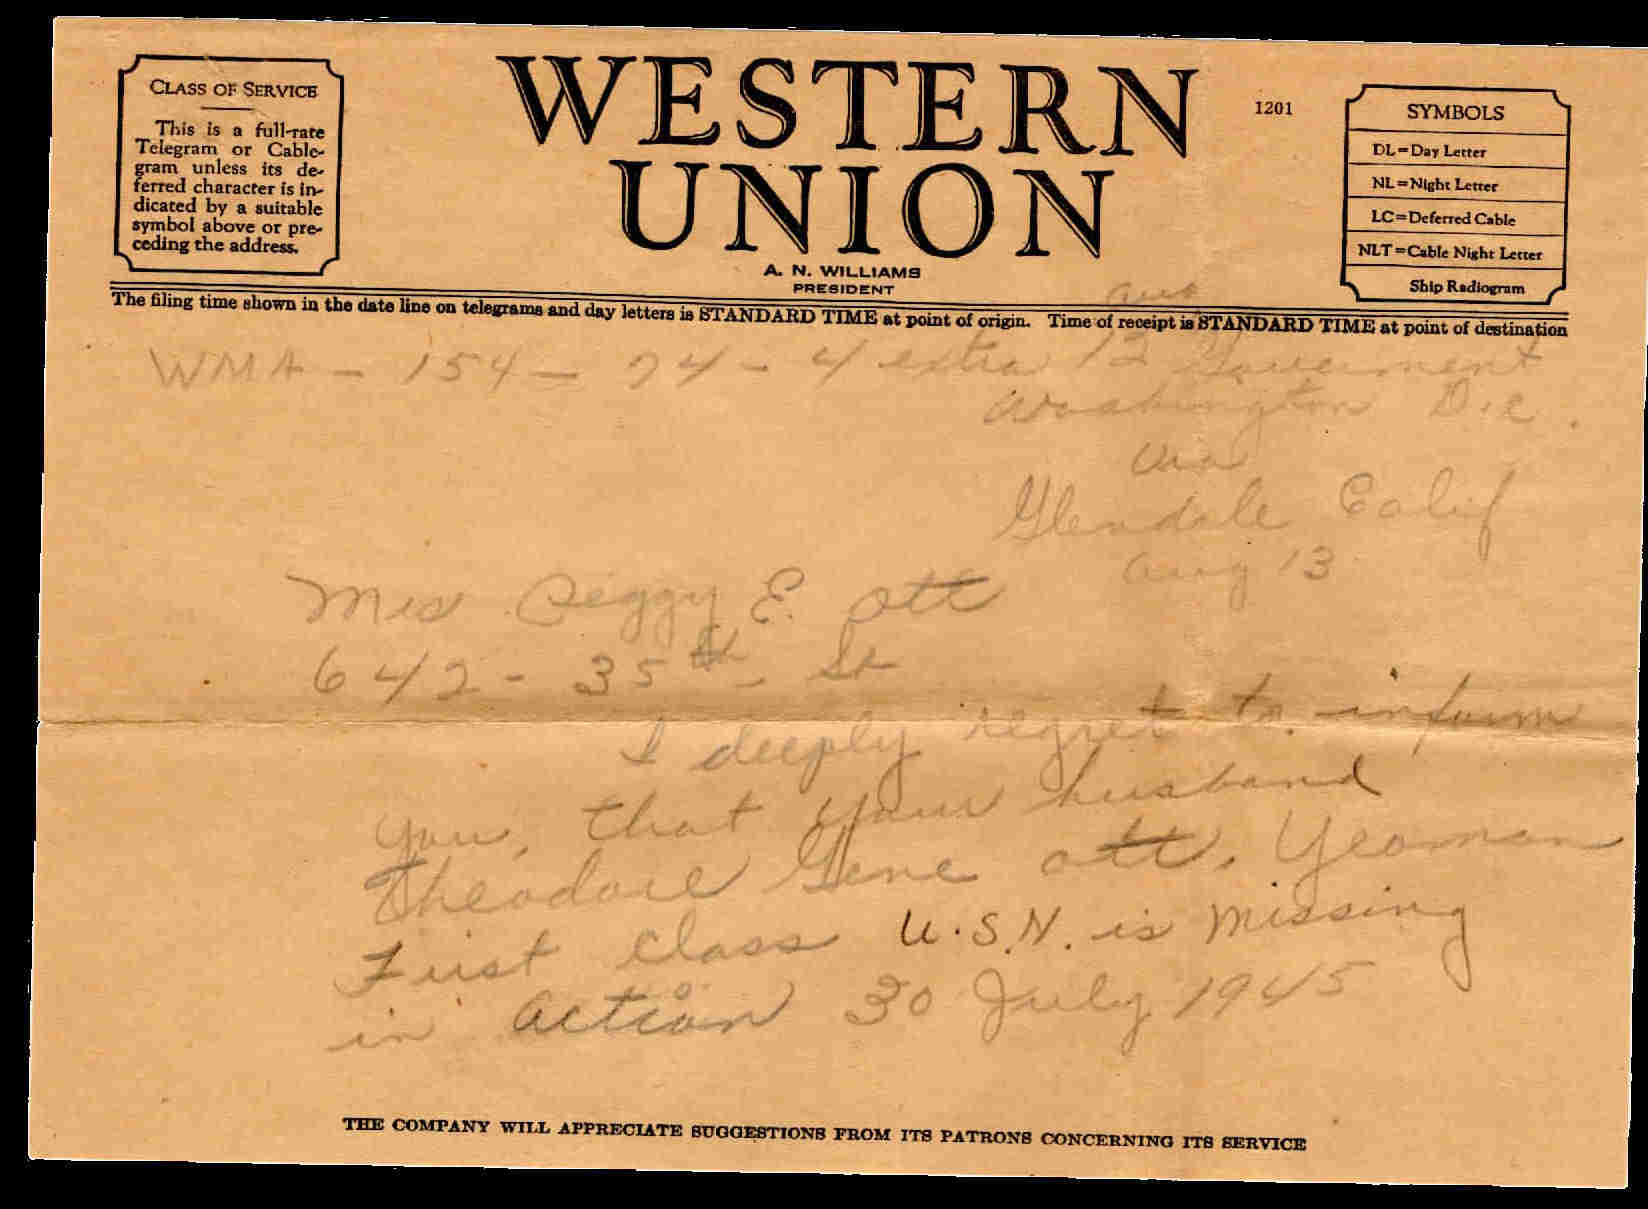 CLASS OF SERVICE
This is a full-rate
Telegram or Cable-
gram unless its de-
ferred character is in-
dicated by a suitable
symbol above or pre-
ceding the address.
WESTERN
UNION
A. N. WILLIAMS
PRESIDENT
1201
SYMBOLS
DL=Day Letter
NL=Night Letter
LC=Deferred Cable
NLT=Cable Night Letter
Ship Radiogram
The filing time shown in the date line on telegrams and day letters is STANDARD TIME at point of origin. Time of receipt is STANDARD TIME at point of destination
aug
WMA - 154 - 74 - 4 extra 12 Government
Washington D.C.
Via
Glendale Calif
aug 13
Mrs Peggy E. Ott
642 - 35th St
I deeply regret to inform
you, that your husband
Theodore Gene Ott, Yeoman
First Class U.S.N. is missing
in action 30 July 1945
THE COMPANY WILL APPRECIATE SUGGESTIONS FROM ITS PATRONS CONCERNING ITS SERVICE